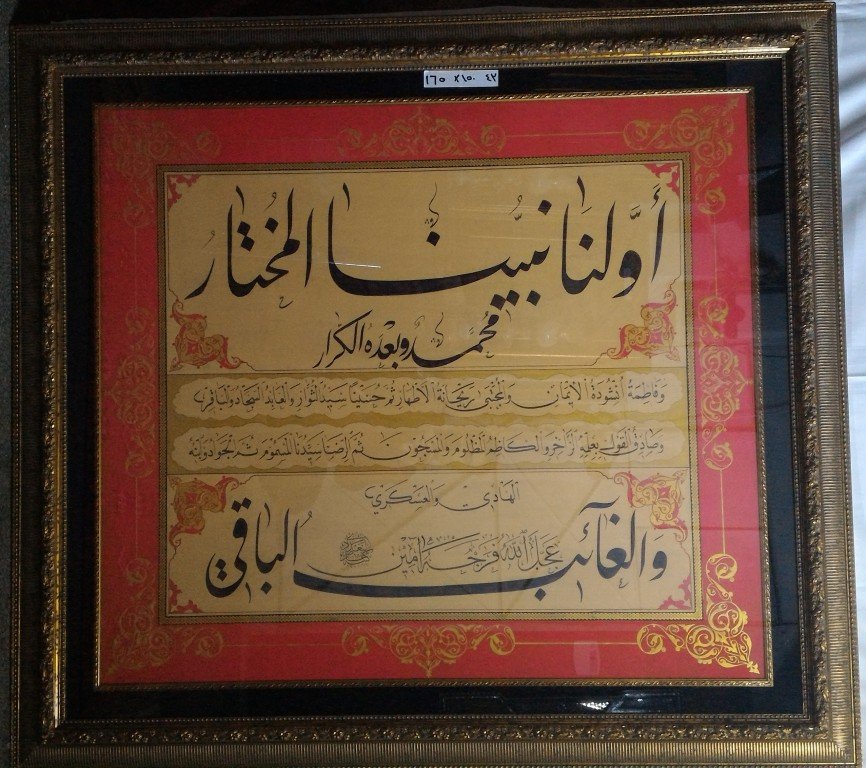 ٤٢ ١٥٠ x ١٦٥
أَوَّلنَا نبيُّنا المختار
محمد وبعده الكرار
وَفَاطِمَةُ أنشُودَةُ الإيمَان وَالمجتبى رَيحَانةُ الأطهارِ ثم حُسَينًا سَيّدُ الثوارِ والعَابِدُ السجاد والباقر
وَصَادِقُ القولِ بعلمٍ زَاخرٍ والكاظم المظلوم والمسجون ثم الرضا سيدنا المسموم ثم الجواد وابنه
الهادي والعسكري
والغائب الباقي
عَجَّل اللهُ فَرجَهُ آمين